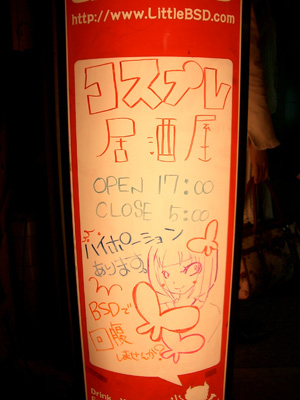 http://www.LittleBSD.com
コスプレ
居酒屋
OPEN 17:00
CLOSE 5:00
ハイポーション
あります。
BSDで
回腹
しませんか?
Drink